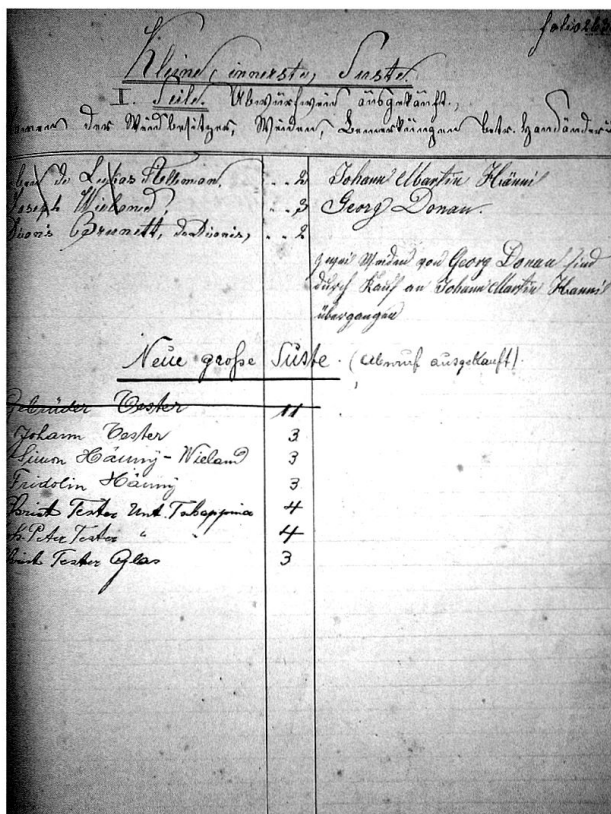 folio 263
Kleine, innerste, Suste.
I. Teile. Abwurfweid ausgekauft,
der Weidbesitzer, Weiden, Bemerkungen betr. Handänder
de Lucias Alleman, . . 2 Johann Martin Hänni
Joseph Wieland . . 3 Georg Donau.
Dionis Brunett, . . 2
zwei Weiden von Georg Donau sind
durch Kauf an Johann Martin Hänni
übergangen
Neue große Suste. (Abwurf ausgekauft).
Gebrüder Tester 11
Johann Tester 3
Simon Hänny-Wieland 3
Fridolin Hänny 3
Christ Tester Unt. Tschappina 4
Peter Tester " " 4
Christ Tester Glas 3